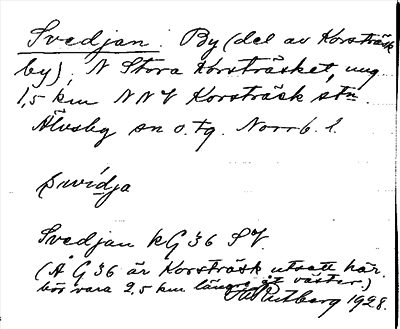 Svedjan. By (del av Korsträsk
by), N Stora Korsträsket, ung.
1,5 km NNV Korsträsk stn.
Älvsby sn o. tg. Norrb. l.
svidja
Svedjan kG 36 SV.
(Å G 36 är Korsträsk utsatt här.
bör vara 2,5 km längre åt väster)
1928.